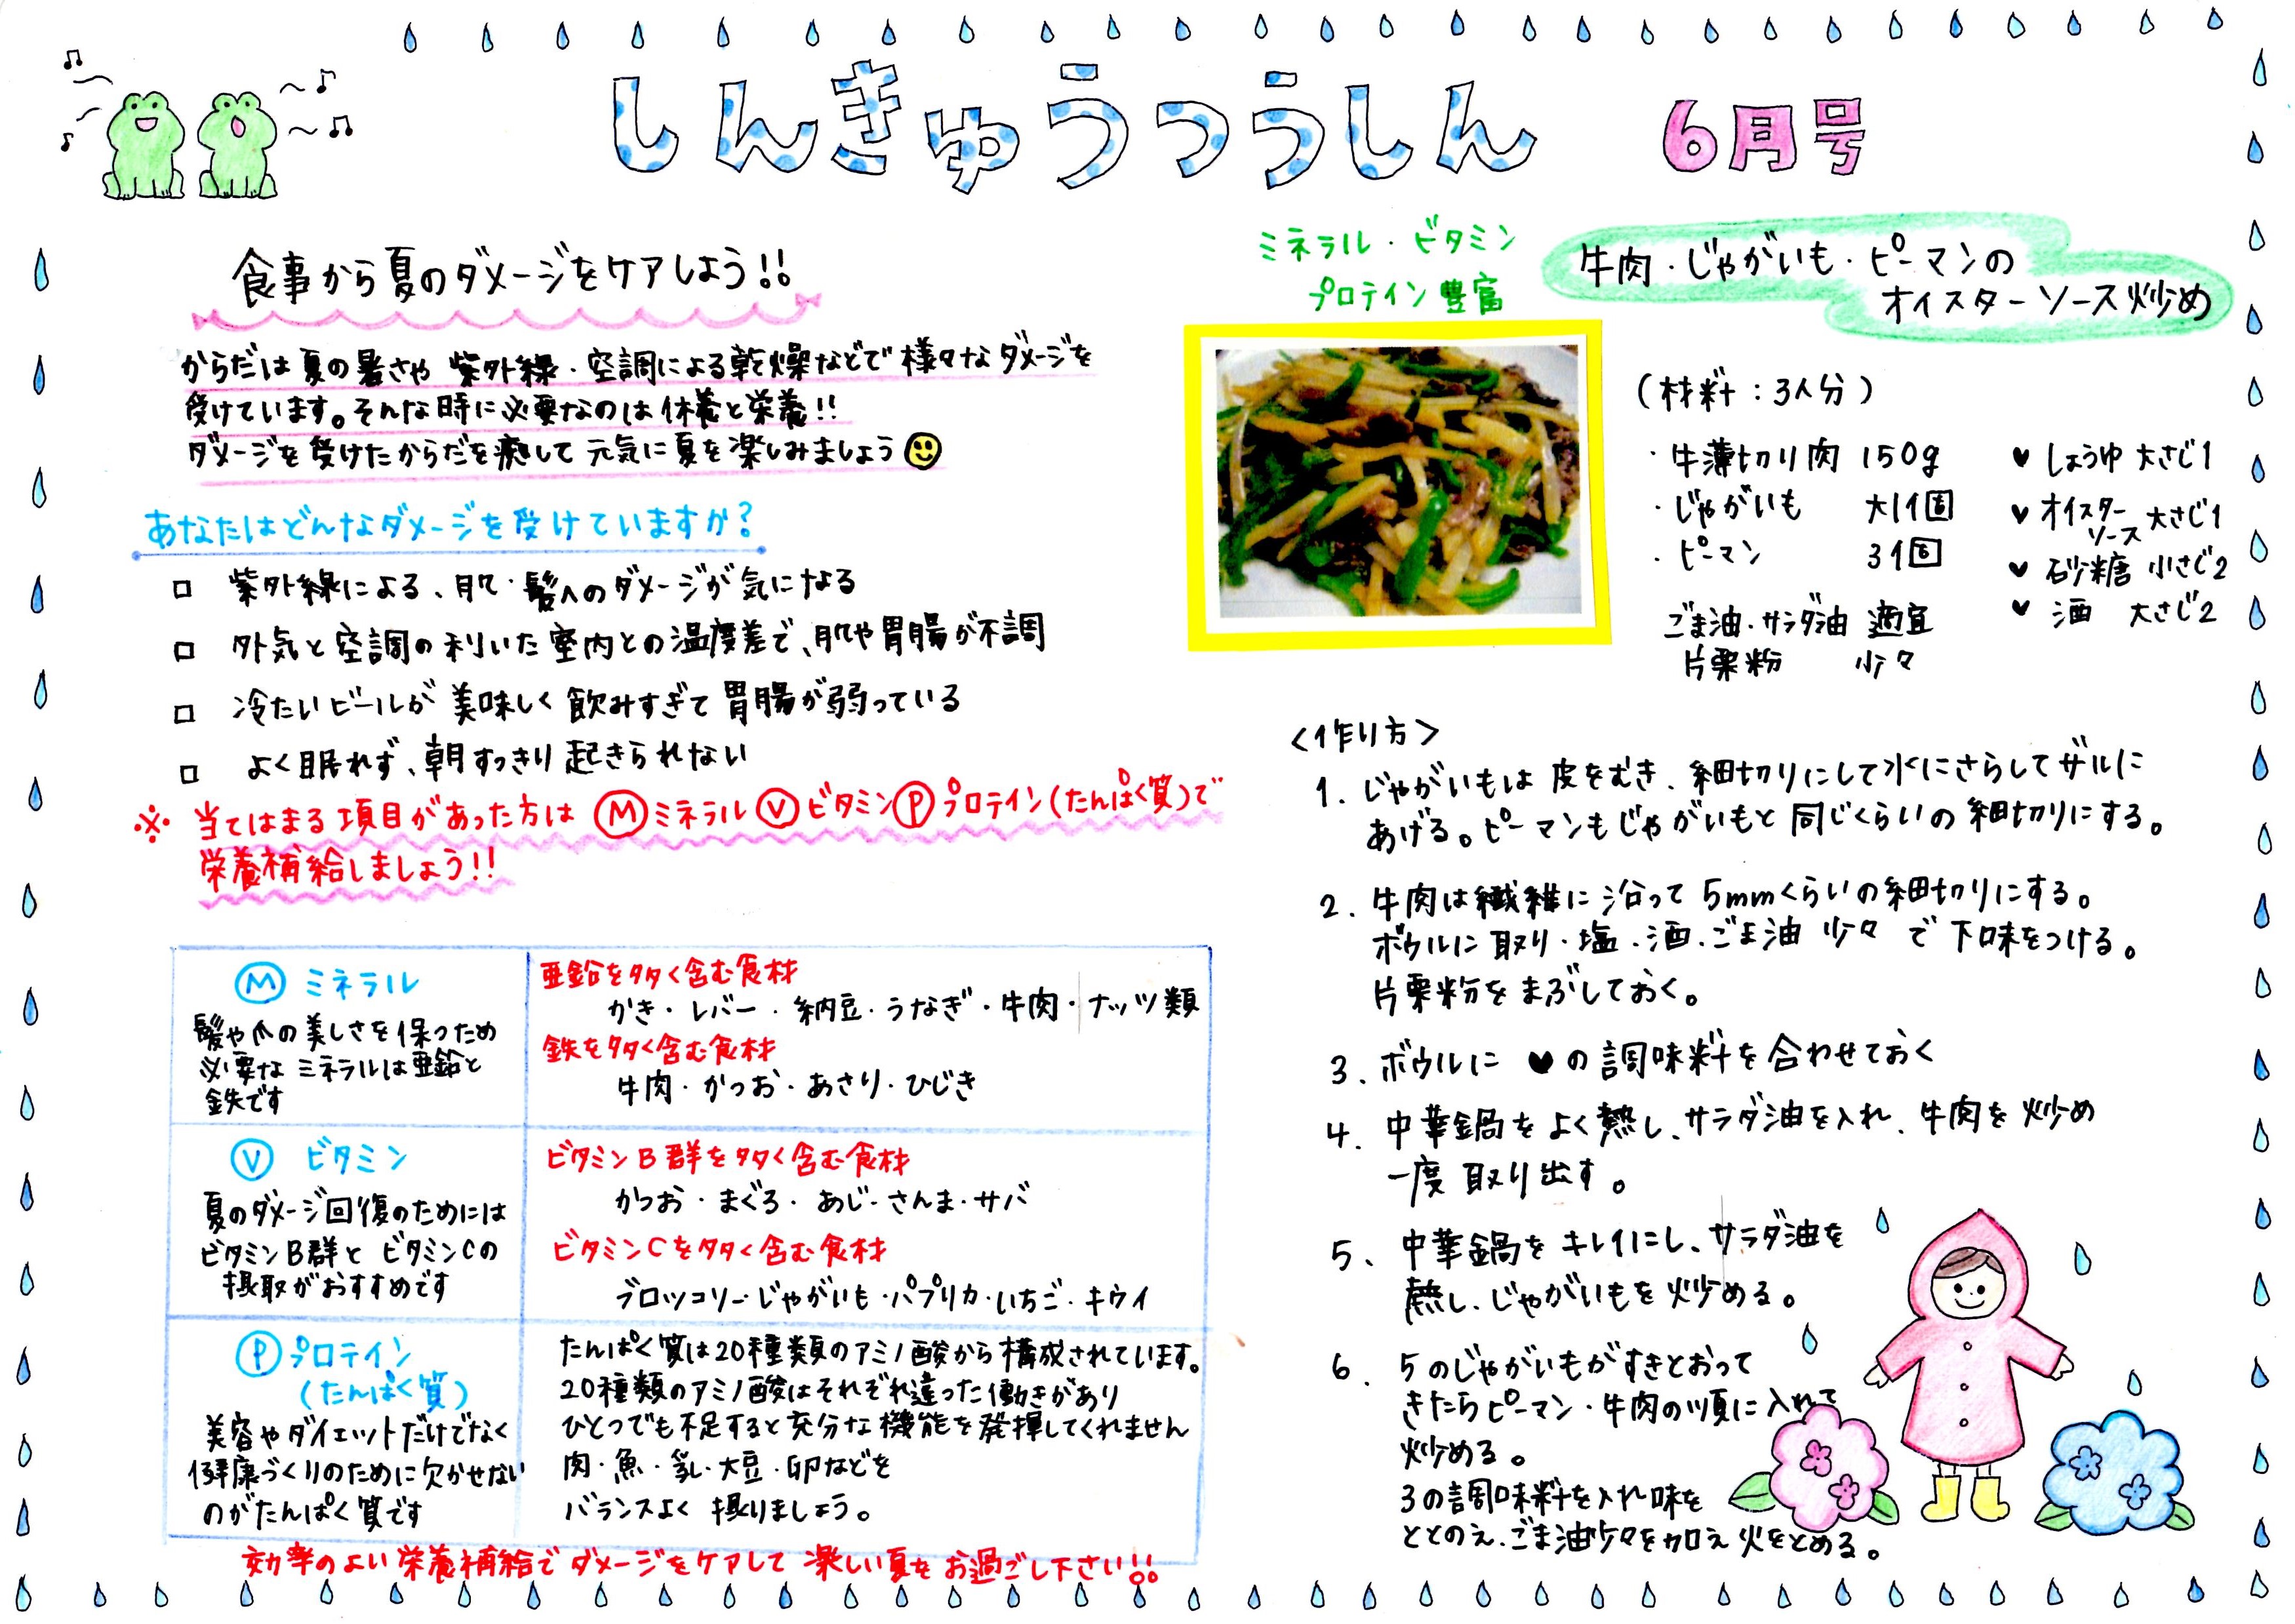 しんきゅうつうしん 6月号
食事から夏のダメージをケアしよう!!
からだは夏の暑さや 紫外線・空調による乾燥などで 様々なダメージを
受けています。そんな時に必要なのは休養と栄養!!
ダメージを受けたからだを癒して 元気に夏を楽しみましょう
あなたはどんなダメージを受けていますか?
□ 紫外線による、肌・髪へのダメージが気になる
□ 外気と空調の利いた室内との温度差で、肌や胃腸が不調
□ 冷たいビールが美味しく飲みすぎて胃腸が弱っている
□ よく眠れず、朝すっきり起きられない
※ 当てはまる項目があった方は Ⓜミネラル Ⓥビタミン Ⓟプロテイン(たんぱく質)で
栄養補給しましょう!!
Ⓜ ミネラル
髪や爪の美しさを保つため
必要なミネラルは亜鉛と
鉄です
亜鉛を多く含む食材
かき・レバー・納豆・うなぎ・牛肉・ナッツ類
鉄を多く含む食材
牛肉・かつお・あさり・ひじき
Ⓥ ビタミン
夏のダメージ回復のためには
ビタミンB群と ビタミンCの
摂取がおすすめです
ビタミンB群を多く含む食材
かつお・まぐろ・あじ・さんま・サバ
ビタミンCを多く含む食材
ブロッコリー・じゃがいも・パプリカ・いちご・キウイ
Ⓟ プロテイン
(たんぱく質)
美容やダイエットだけでなく
健康づくりのために欠かせない
のがたんぱく質です
たんぱく質は20種類のアミノ酸から構成されています。
20種類のアミノ酸はそれぞれ違った働きがあり
ひとつでも不足すると充分な機能を発揮してくれません
肉・魚・乳・大豆・卵などを
バランスよく 摂りましょう。
効率のよい栄養補給でダメージをケアして 楽しい夏をお過ごし下さい!!
ミネラル・ビタミン
プロテイン豊富
牛肉・じゃがいも・ピーマンの
オイスターソース炒め
(材料:3人分)
・牛薄切り肉 150g
・じゃがいも 大1個
・ピーマン 3個
ごま油・サラダ油 適宜
片栗粉 少々
♥ しょうゆ 大さじ1
♥ オイスターソース 大さじ1
♥ 砂糖 小さじ2
♥ 酒 大さじ2
<作り方>
1. じゃがいもは 皮をむき、細切りにして水にさらしてザルに
あげる。ピーマンもじゃがいもと同じくらいの細切りにする。
2. 牛肉は繊維に沿って 5mmくらいの細切りにする。
ボウルに取り・塩・酒・ごま油 少々 で下味をつける。
片栗粉をまぶしておく。
3. ボウルに ♥の調味料を合わせておく
4. 中華鍋をよく熱し、サラダ油を入れ、牛肉を炒め
一度取り出す。
5. 中華鍋をキレイにし、サラダ油を
熱し、じゃがいもを炒める。
6. 5のじゃがいもがすきとおって
きたらピーマン・牛肉の順に入れて
炒める。
3の調味料を入れ味を
ととのえ、ごま油少々を加え火をとめる。